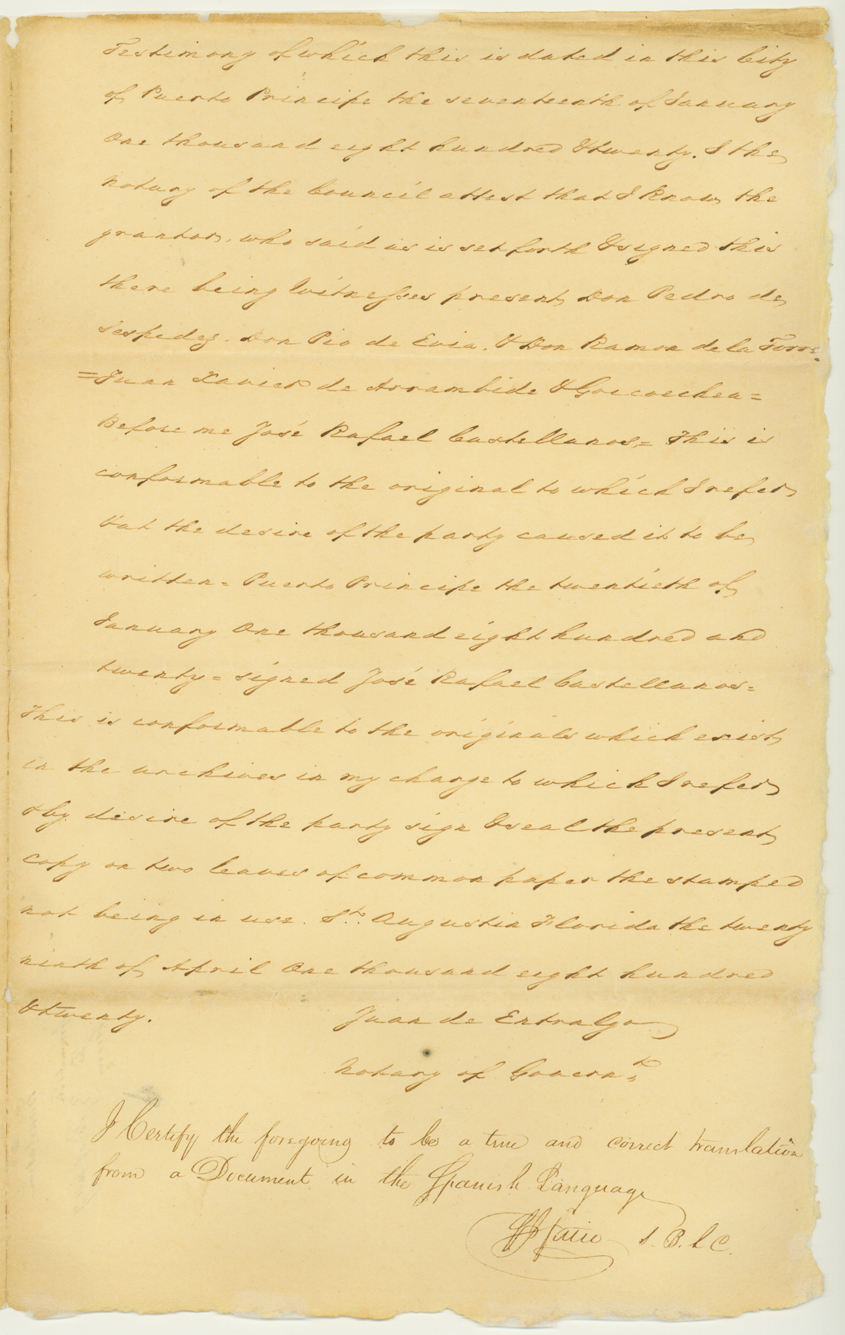 Testimony of which this is dated in this City
of Puerto Principe the seventeenth of January
One thousand eight hundred & twenty. I the
Notary of the Council attest that I know the
grantor, who said as is set forth & signed this
there being Witnesses present, Don Pedro de
Sespedez. Don Pio de Evia. & Don Ramon de la Torre=
=Juan Xavier de Arrambide & Goicoechea=
Before me José Rafael Castellanos= This is
conformable to the original to which I refer
& at the desire of the party caused it to be
written= Puerto Principe the twentieth of
January One thousand eight hundred and
twenty= signed José Rafael Castellanos=
This is conformable to the originals which exist
in the archives in my charge to which I refer
& by desire of the party sign & seal the present
copy on two leaves of common paper the stamped
not being in use. St. Augustin Florida the twenty
ninth of April One thousand eight hundred
& twenty. Juan de Entralgo
Notary of Governt.
I Certify the foregoing to be a true and correct translation
from a Document in the Spanish Language
S. B. L C.